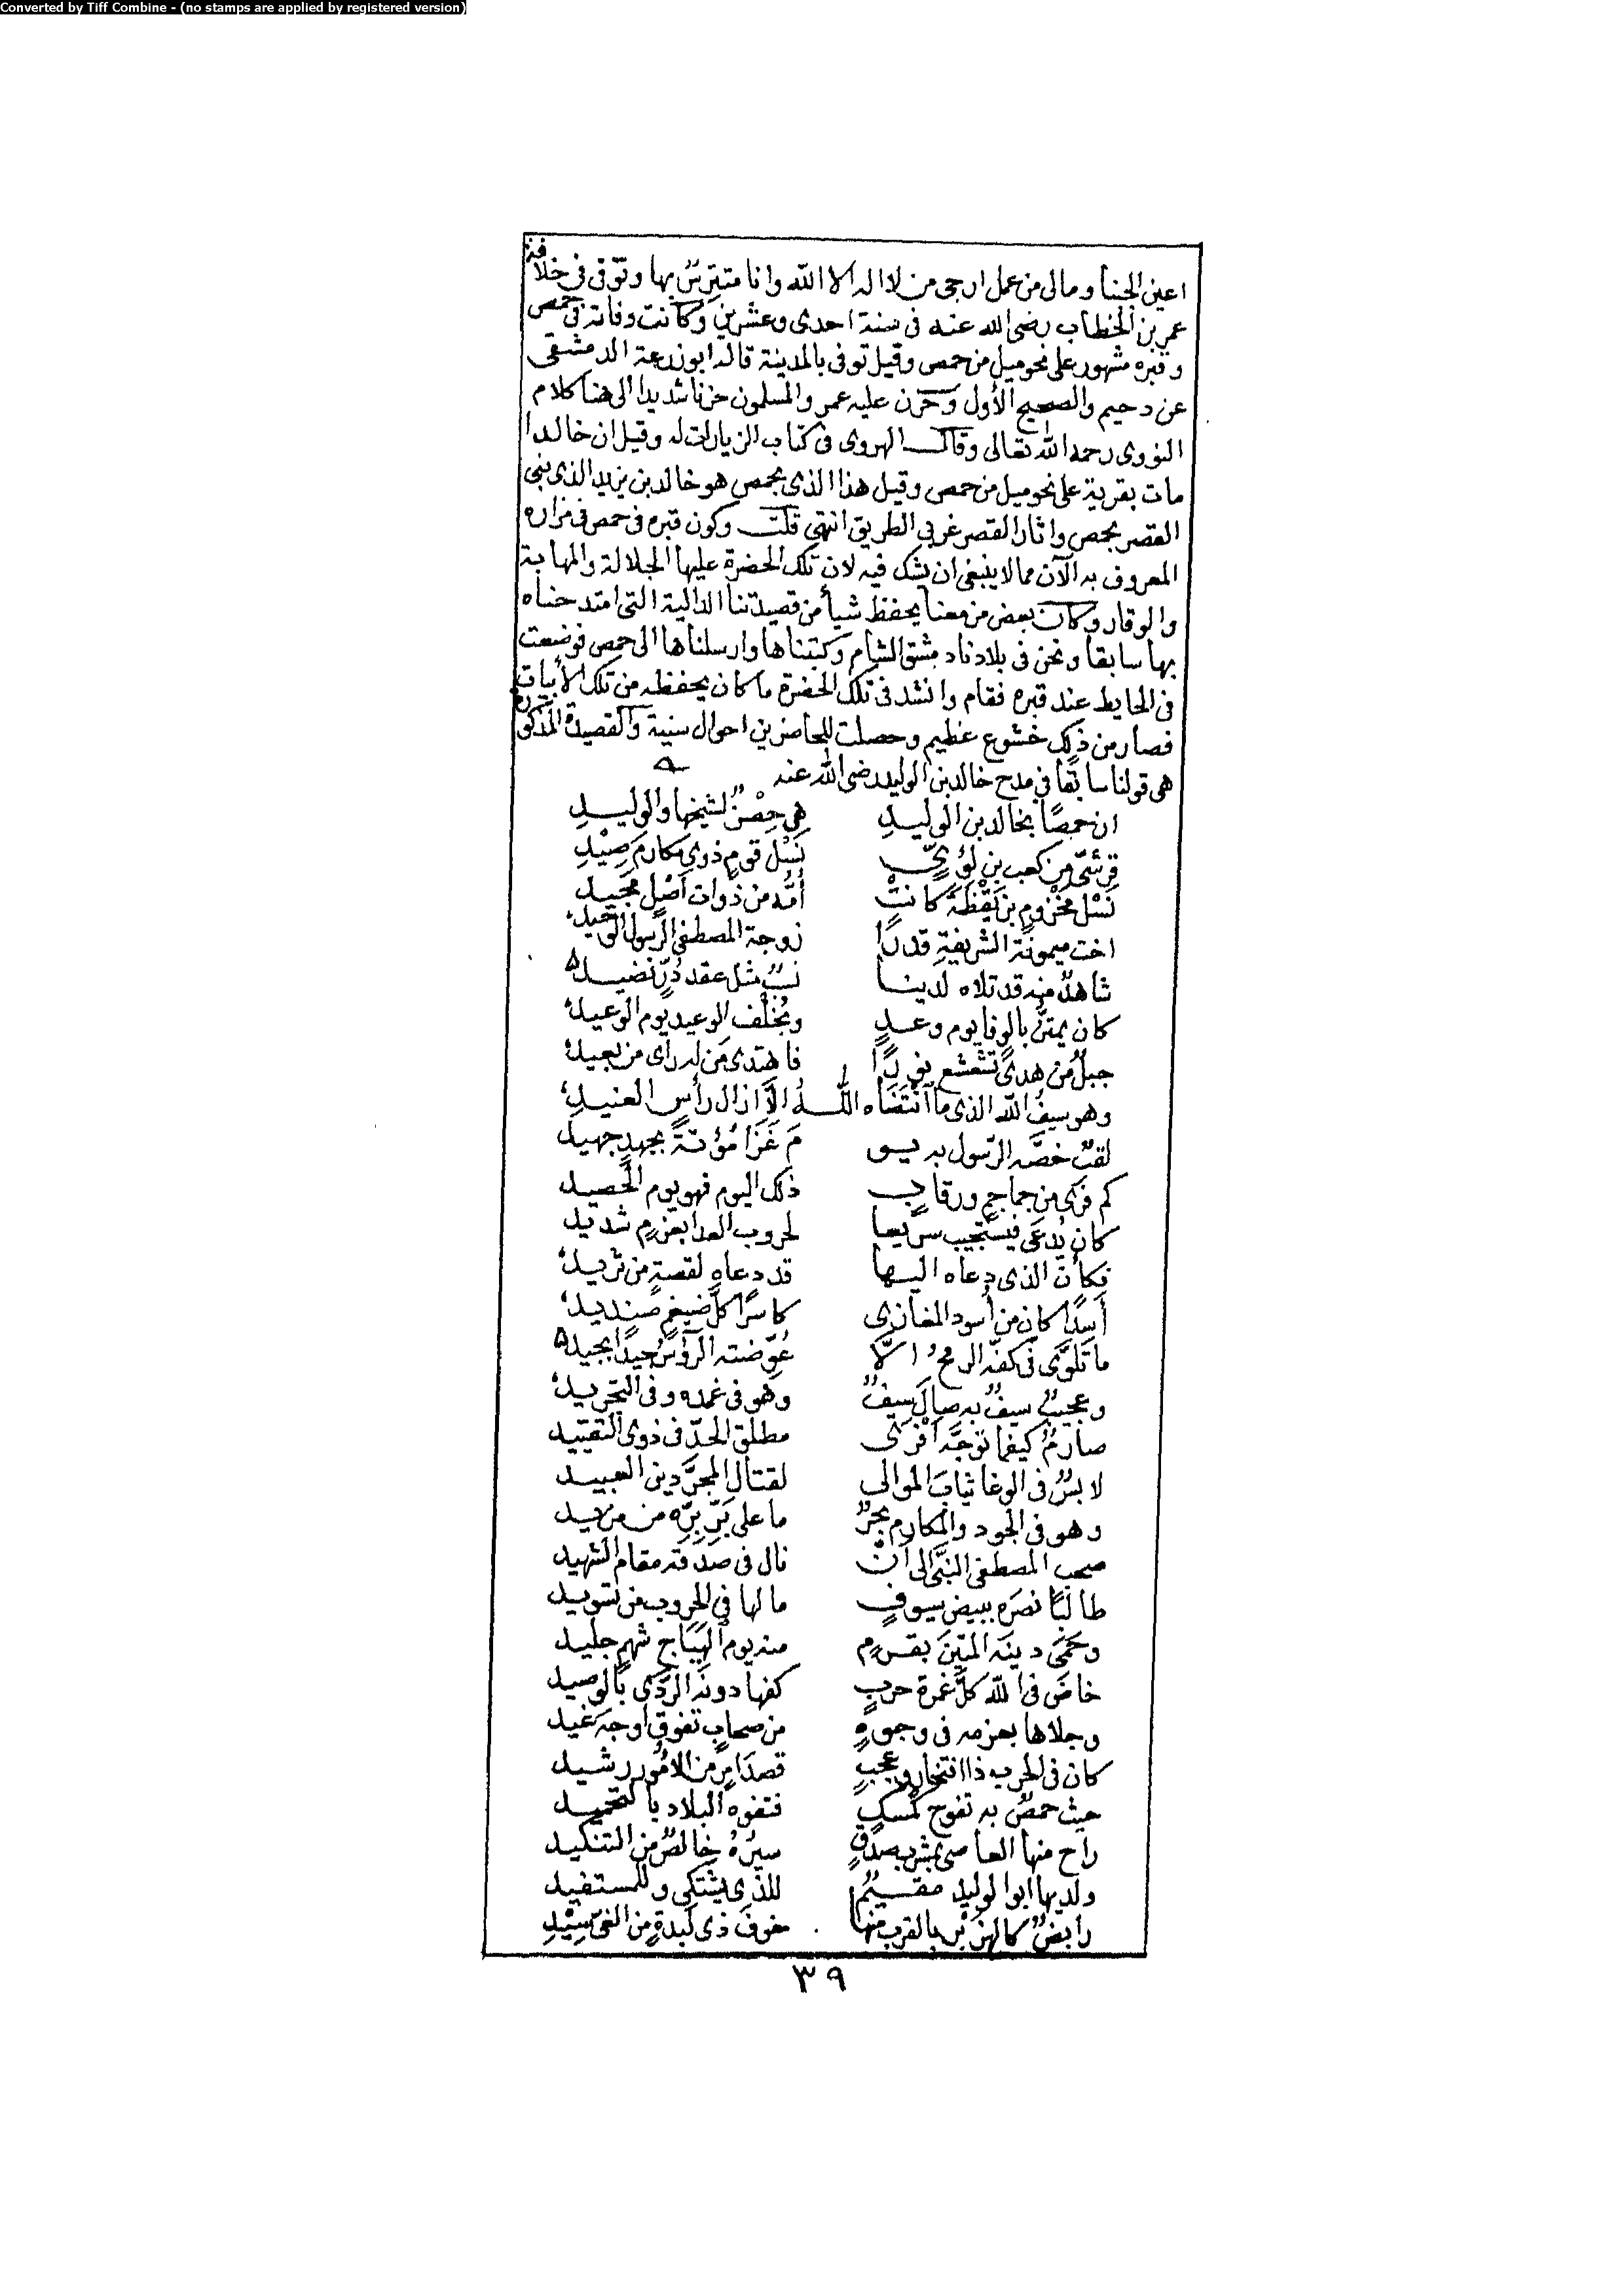 Converted by Tiff Combine - (no stamps are applied by registered version)
اعين الجبنا ومالى من عمل ارجى من لا اله الا الله وانا متترس بها وتوفى فى خلافة
عمر بن الخطاب رضى الله عنه فى سنة احدى وعشرين وكانت وفاته فى حمص
وقبره مشهور على نحو ميل من حمص وقيل توفى بالمدينة قاله ابو زرعة الدمشقى
عن دحيم والصحيح الأول وحزن عليه عمر والمسلمون حزنا شديدا الى هنا كلام
النووى رحمه الله تعالى وقال الهروى فى كتاب الزيارات له وقيل ان خالدا
مات بقرية على نحو ميل من حمص وقيل هذا الذى بحمص هو خالد بن يزيد الذى بنى
القصر بحمص واثار القصر غربى الطريق انتهى قلت وكون قبره فى حمص فى مزاره
المعروف به الآن مما لا ينبغى ان يشك فيه لان تلك الحضرة عليها الجلالة والمهابة
والوقار وكان بعض من معنا يحفظ شيأ من قصيدتنا الدالية التى امتدحناه
بها سابقا ونحن فى بلادنا دمشق الشام وكتبناها وارسلناها الى حمص فوضعت
فى الحايط عند قبره فقام وانشد فى تلك الحضرة ما كان يحفظه من تلك الأبيات
فصار من ذلك خشوع عظيم وحصلت للحاضرين احوال سنية والقصيدة المذكورة
هى قولنا سابقا فى مدح خالد بن الوليد رضى الله عنه
ان حمصًا بخالد بن الوليدِ هى حِصْنٌ لشيخها والوليدِ
قرشىّ من كعب بن لؤىّ نَسْل قومٍ ذوى مكارم صِيْدِ
نَسْل مخزوم بن يَقْظَةَ كانتْ أمّه من ذوات أصْل مجيد
اخت ميمونة الشريفةِ قدرًا زوجة المصطفى الرسول الوحيد
شاهدٌ منه قد تلاه لدينا نسبٌ مثل عقد دُرّ نضيد
كان يمتنّ بالوفا يوم وعدٍ ويُخْلف الوعيد يوم الوعيد
جبلٌ من هدىً تشعشع نورًا فاهتدى من له رأى من بعيد
وهو سيفُ الله الذى ما انْتَضَاه اللهُ الاّ ازال رأس العنيدِ
لقبٌ خصّه الرّسول به يو مَ غَزَا مُؤتةً بجهدٍ جهيد
كم فرى من جماجمٍ ورقابٍ ذلك اليوم فهو يوم الحصيد
كان يُدعَى فيستجيب سريعا لحروب العدا بعزمٍ شديد
فكأنّ الذى دعاه اليها قد دعاه لقصعةٍ من ثريد
أسدًا كان من أسود المغازى كاسرًا كلّ ضيغمٍ صنديد
ما تلوّى فى كفّه الرمحُ الاّ عُوّضته الرؤسُ جيدًا بجيد
وعجيبٌ سيفٌ به صال سيفٌ وهو فى غمده وفى التجريد
صارمٌ كيفما توجّه افْرَى مطلق الحدّ فى ذوى التقييد
لابسٌ فى الوغا ثيابَ الموالى لقتال المجرّدين العبيد
وهو فى الجود والمكارم بحرٌ ما على بَرّ بِرّه من مزيد
صحب المصطفى النبىَّ الى انْ نال فى صدقه مقام الشهيد
طالبًا نصره ببيض سيوفٍ ما لها فى الحروب من تسويد
وحَمَى دينَه المتينَ بقرمٍ منه يوم الهياج شهم جليد
خاضَ فى الله كلَّ غمرة حربٍ كفها دونه الردى بالوصيد
وجلاها بعزمه فى وجوهٍ من صحابٍ تفوق اوجه غيد
كان فى الحرب ذا افتخار وعجبٍ قصدَ امرٍ من الامور رشيد
حيث حمصٌ به تفوح كمسكٍ فتفوه البلاد بالتحميد
راح منها العاصى يبشر بصدقٍ سيرُهُ خالصٌ من التنكيد
ولديها ابو الوليد مقيمٌ للذى يشتكى وللمستفيد
رابضٌ كالهزبر بالقرب منها خوفَ ذى لبدةٍ من الغىّ سِيْدِ
٣٩